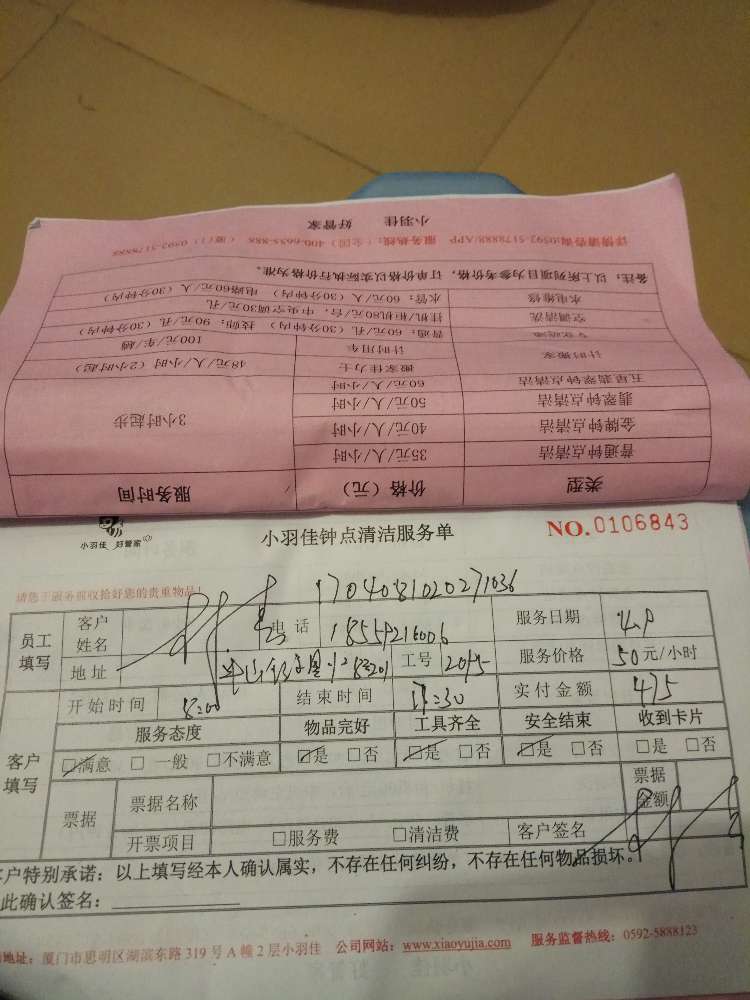 小羽佳 好管家
详情请咨询0592-5178888/APP 服务热线:(全国)400-6655-888 (厦门)0592-5178888
备注:以上所列项目为参考价格,订单价格以实际执行价格为准。
水电维修 水管:60元/人(30分钟内) 电路60元/人(30分钟内)
空调清洗 挂机/柜机80元/台,中央空调30元/孔
普通:60元/孔(30分钟内) 技师:90元/孔(30分钟内)
计时搬家 计时用车 100元/车/趟
搬家佳力士 48元/人/小时(2小时起)
五星翡翠钟点清洁 60元/人/小时
翡翠钟点清洁 50元/人/小时 3小时起步
金牌钟点清洁 40元/人/小时
普通钟点清洁 35元/人/小时
类型 价格(元) 服务时间
小羽佳 好管家 小羽佳钟点清洁服务单 NO.0106843
请您于服务前收拾好您的贵重物品!
1704081020271036
员工填写 客户姓名 电话 18559216006 服务日期 4.9
地址 工号 2015 服务价格 50元/小时
客户填写 开始时间 8:00 结束时间 17:30 实付金额 475
服务态度 物品完好 工具齐全 安全结束 收到卡片
☑满意 □一般 □不满意 ☑是 □否 ☑是 □否 ☑是 □否 □是 □否
票据 票据名称 票据金额
开票项目 □服务费 □清洁费 客户签名
户特别承诺:以上填写经本人确认属实,不存在任何纠纷,不存在任何物品损坏。
此确认签名:
地址:厦门市思明区湖滨东路319号A幢2层小羽佳 公司网站:www.xiaoyujia.com 服务监督热线:0592-5888123